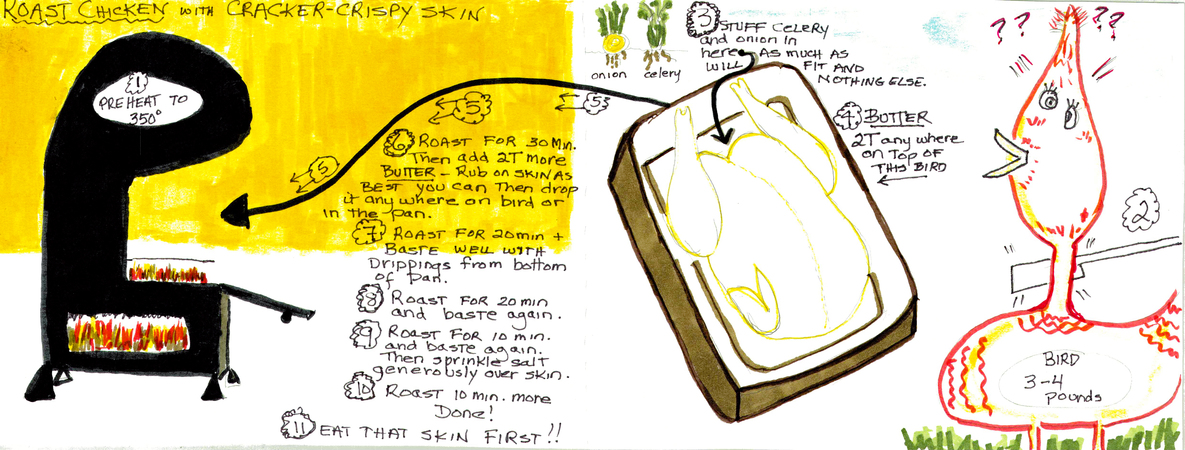 ROAST CHICKEN WITH CRACKER-CRISPY SKIN
1
PREHEAT TO
350°
2
BIRD
3-4
Pounds
onion celery
3 STUFF CELERY
and onion in
here AS MUCH AS
WILL FIT AND
NOTHING ELSE.
4 BUTTER
2T any where
on Top OF
THIS BIRD
5
5
5
6 ROAST FOR 30 Min.
Then add 2T more
BUTTER - Rub on SKIN AS
BEST you can Then drop
it any where on bird or
in the pan.
7 ROAST FOR 20 min +
BASTE WELL WITH
Drippings from bottom
of pan.
8 ROAST FOR 20 min
and baste again.
9 ROAST FOR 10 min.
and baste again.
Then sprinkle salt
generously over skin.
10 ROAST 10 min. more
Done!
11 EAT THAT SKIN FIRST!!
??
??